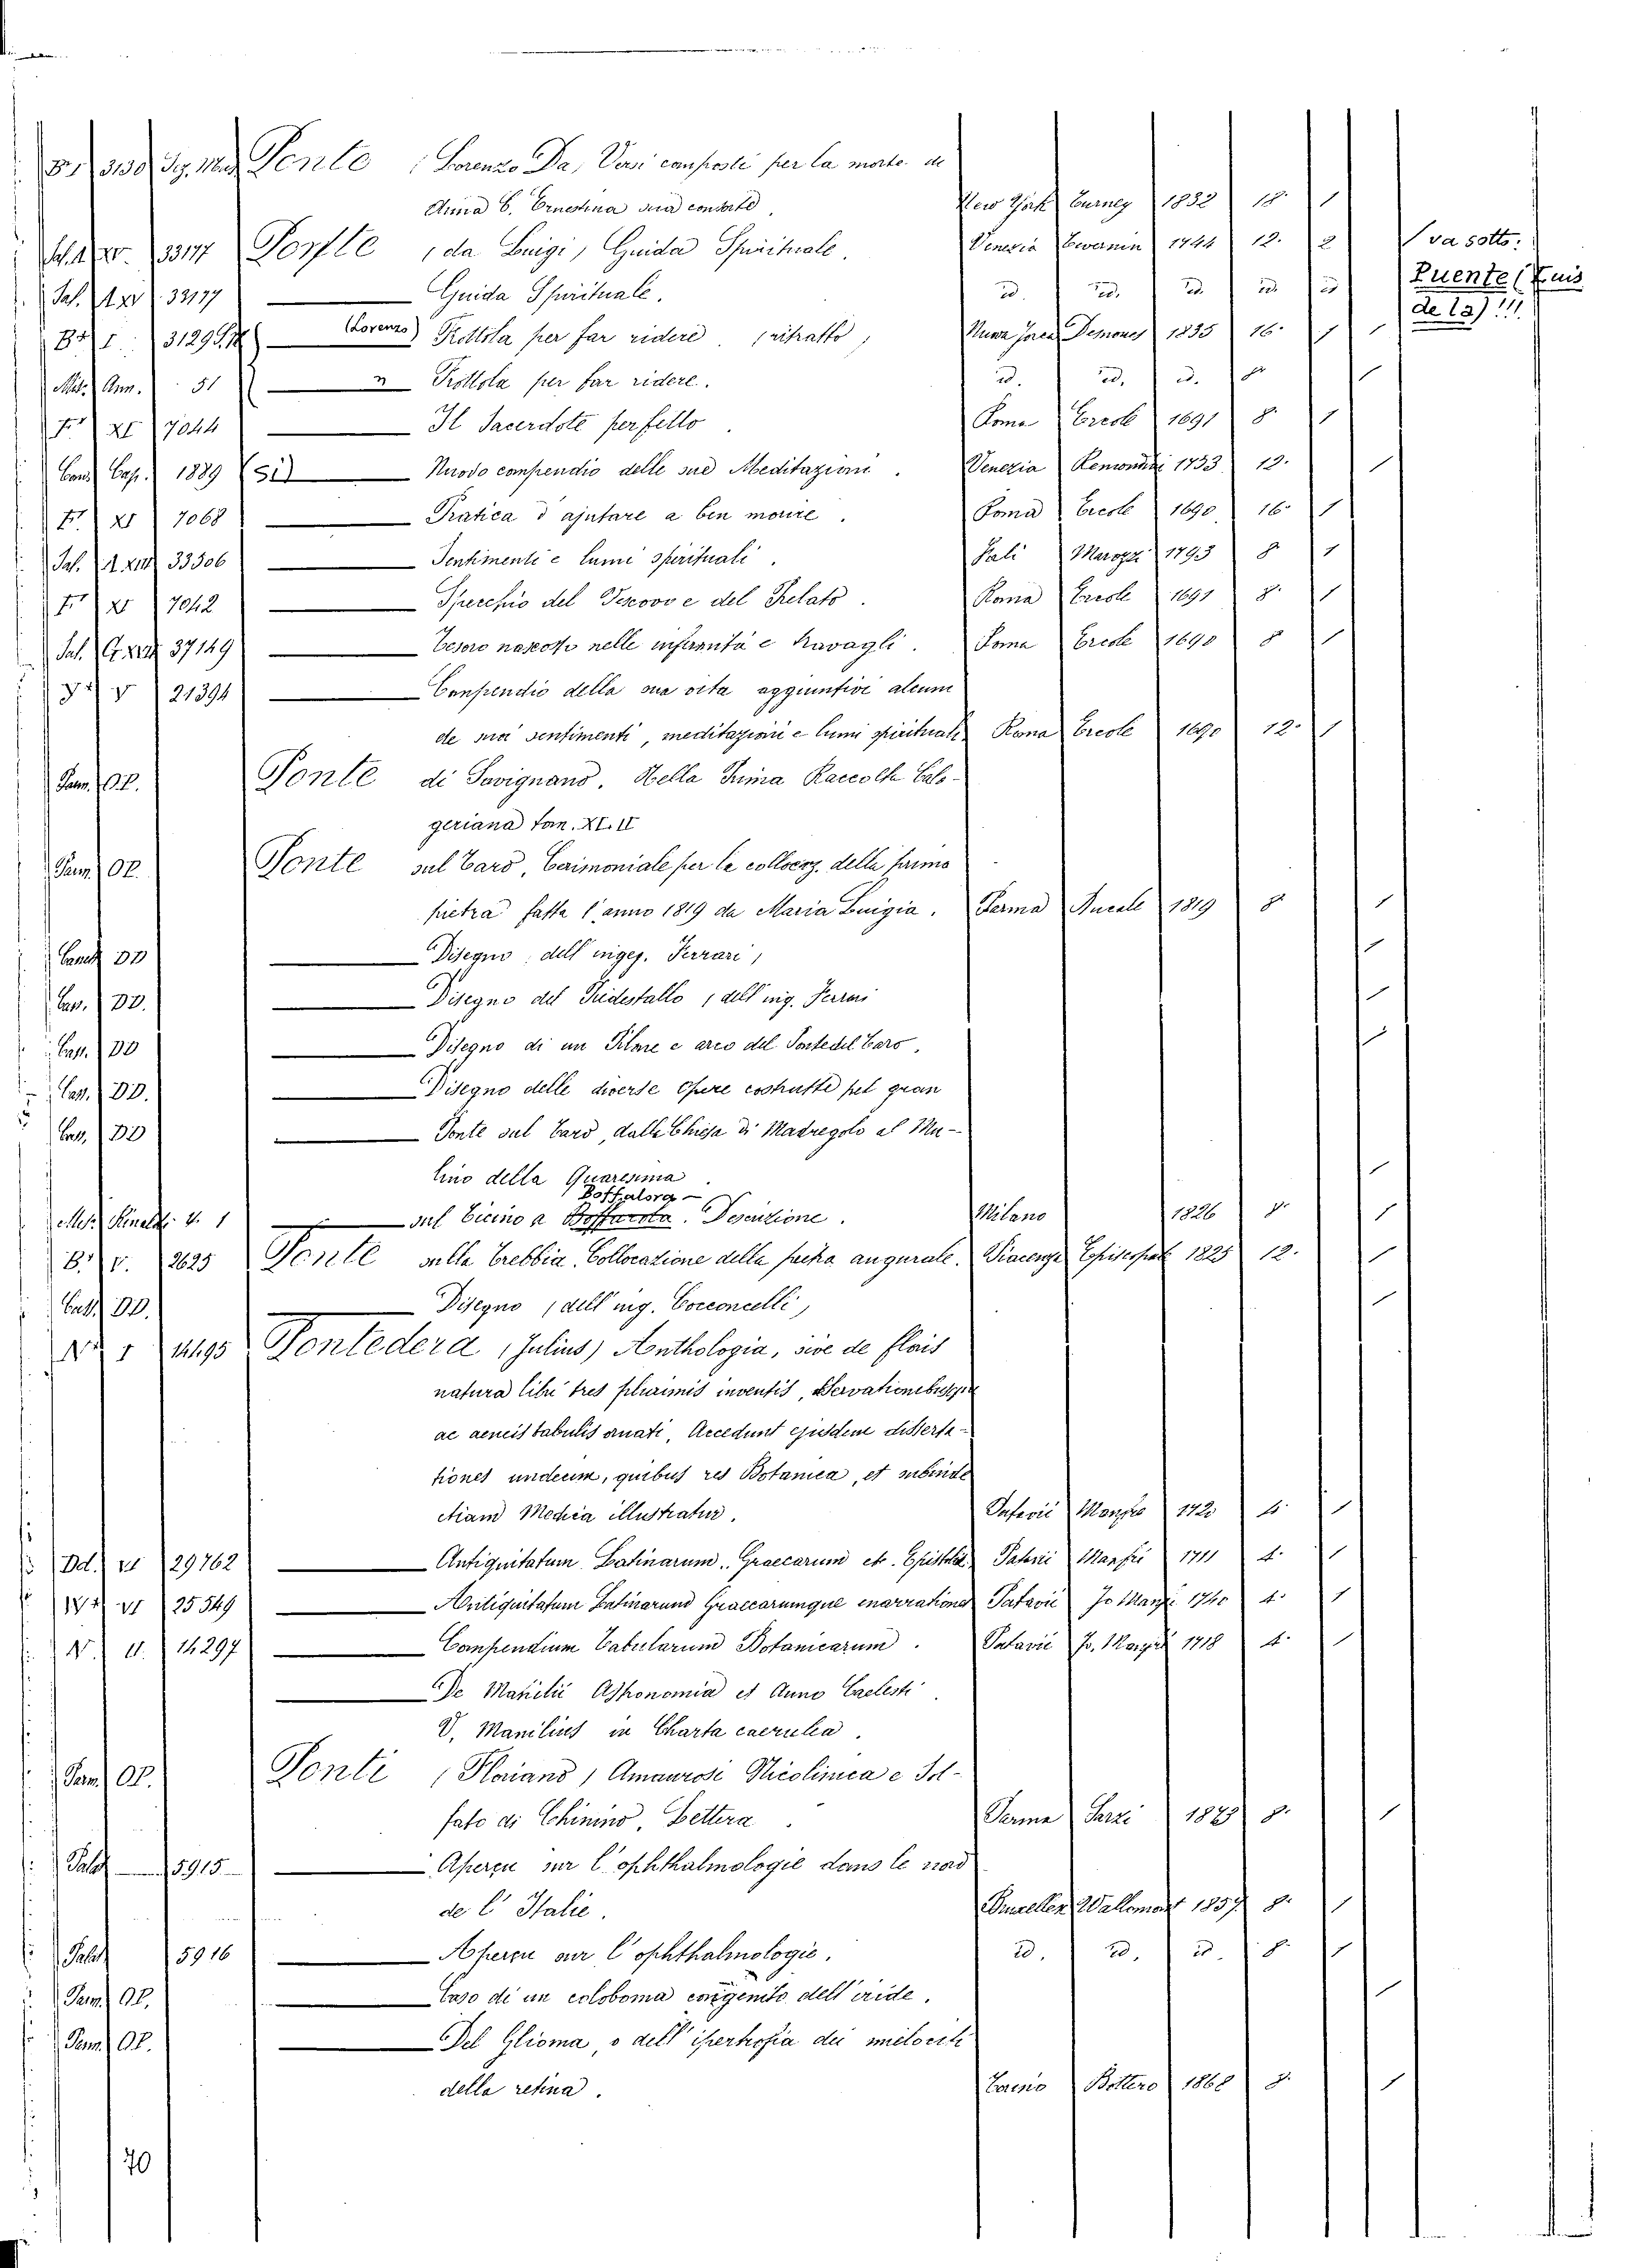 Ponte (Lorenzo Da, Versi composti per la morte di
Anna C. Ernestina sua consorte. New York Turney 1832 12. 1
Sal. A XV. 33177 Ponte (da Luigi) Guida Spirituale. Venezia 1744 12. 2 va sotto:
Sal. A XV 33177 Guida Spirituale. id. id. id. id. Puente (Luis
de la) !!!
B.4 I. 31295 (Lorenzo) Frottola per far ridere. (ritratto) Nuova Jorca 1835 16. 1
Mis. Ann. 51 " Frottola per far ridere. id. id. id. 1
F. XI 7044 Il Sacerdote perfetto. Roma Ercole 1691 8. 1
Cons. Cap. 1889 (Si) Nuovo compendio delle sue Meditazioni. Venezia Remondini 1733 12. 1
F. XI 7068 Pratica d'ajutare a ben morire. Roma Ercole 1690 16. 1
Sal. A XIII 33306 Sentimenti e lumi spirituali. 1793 8. 1
F. XI 7042 Specchio del Vescovo e del Prelato. Roma Ercole 1691 8. 1
Sal. 37149 Tesoro nascosto nelle infermità e travagli. Roma Ercole 1690 8 1
V 21394 Compendio della sua vita aggiuntivi alcuni
de suoi sentimenti, meditazioni e lumi spirituali. Roma Ercole 1690 12. 1
Parm. OP. Ponte di Savignano. Nella Prima Raccolta Calo-
geriana tom. XI. II
Parm. OP. Ponte sul Taro, Cerimoniale per la collocaz. della prima
pietra fatta l'anno 1819 da Maria Luigia. Parma Ducale 1819 8 1
Cass. DD Disegno, dell'ingeg. Ferrari,
Cass. DD. Disegno del Piedestallo, dell'ing. Ferrari
Cass. DD Disegno di un Pilone e arco del Ponte del Taro,
Cass. DD. Disegno delle diverse Opere costrutte pel gran
Cass. DD Ponte sul Taro, dalla Chiesa di Madregolo al Mu-
lino della Quaresima
Boffalora
Mis. V. 1 sul Ticino a Boffarola. Descrizione. Milano 1826 1
B. V. 2625 Ponte sulla Trebbia. Collocazione della pietra augurale. Piacenza 1825 12. 1
Cass. DD. Disegno (dell'ing. Cocconcelli)
I 14195 Pontedera (Julius) Anthologia, sive de floris
natura libri tres plurimis inventis,
ac aeneis tabulis ornati, Accedunt ejusdem disserta-
tiones undecim, quibus res Botanica, et subinde
etiam Medica illustratur. Patavii Manfré 1720 4. 1
Dd. VI 29762 Antiquitatum Latinarum Graecarum etc. Patavii Manfré 4. 1
VI 25549 Antiquitatum Latinarum Graecarumque enarrationes Patavii Jo Manfré 1740 4. 1
N. II. 14297 Compendium Tabularum Botanicarum. Patavii Jo. Manfré 1718 4. 1
De Manilii Astronomia et Anno Caelesti.
V. Manilius in Charta caerulea.
Parm. OP. Ponti (Floriano) Amaurosi Nicotinica e Sol-
fato di Chinino, Lettera. Parma 8. 1
Palat 5915 Aperçu sur l'ophthalmologie dans le nord
de l'Italie. Bruxelles 1857 8. 1
Palat 5916 Aperçu sur l'ophthalmologie. id. id. id. 8. 1
Parm. OP. Caso di un coloboma congenito dell'iride.
Parm. OP. Del Glioma, o dell'ipertrofia dei mielociti
della retina. Torino Bottero 1868 8. 1
70